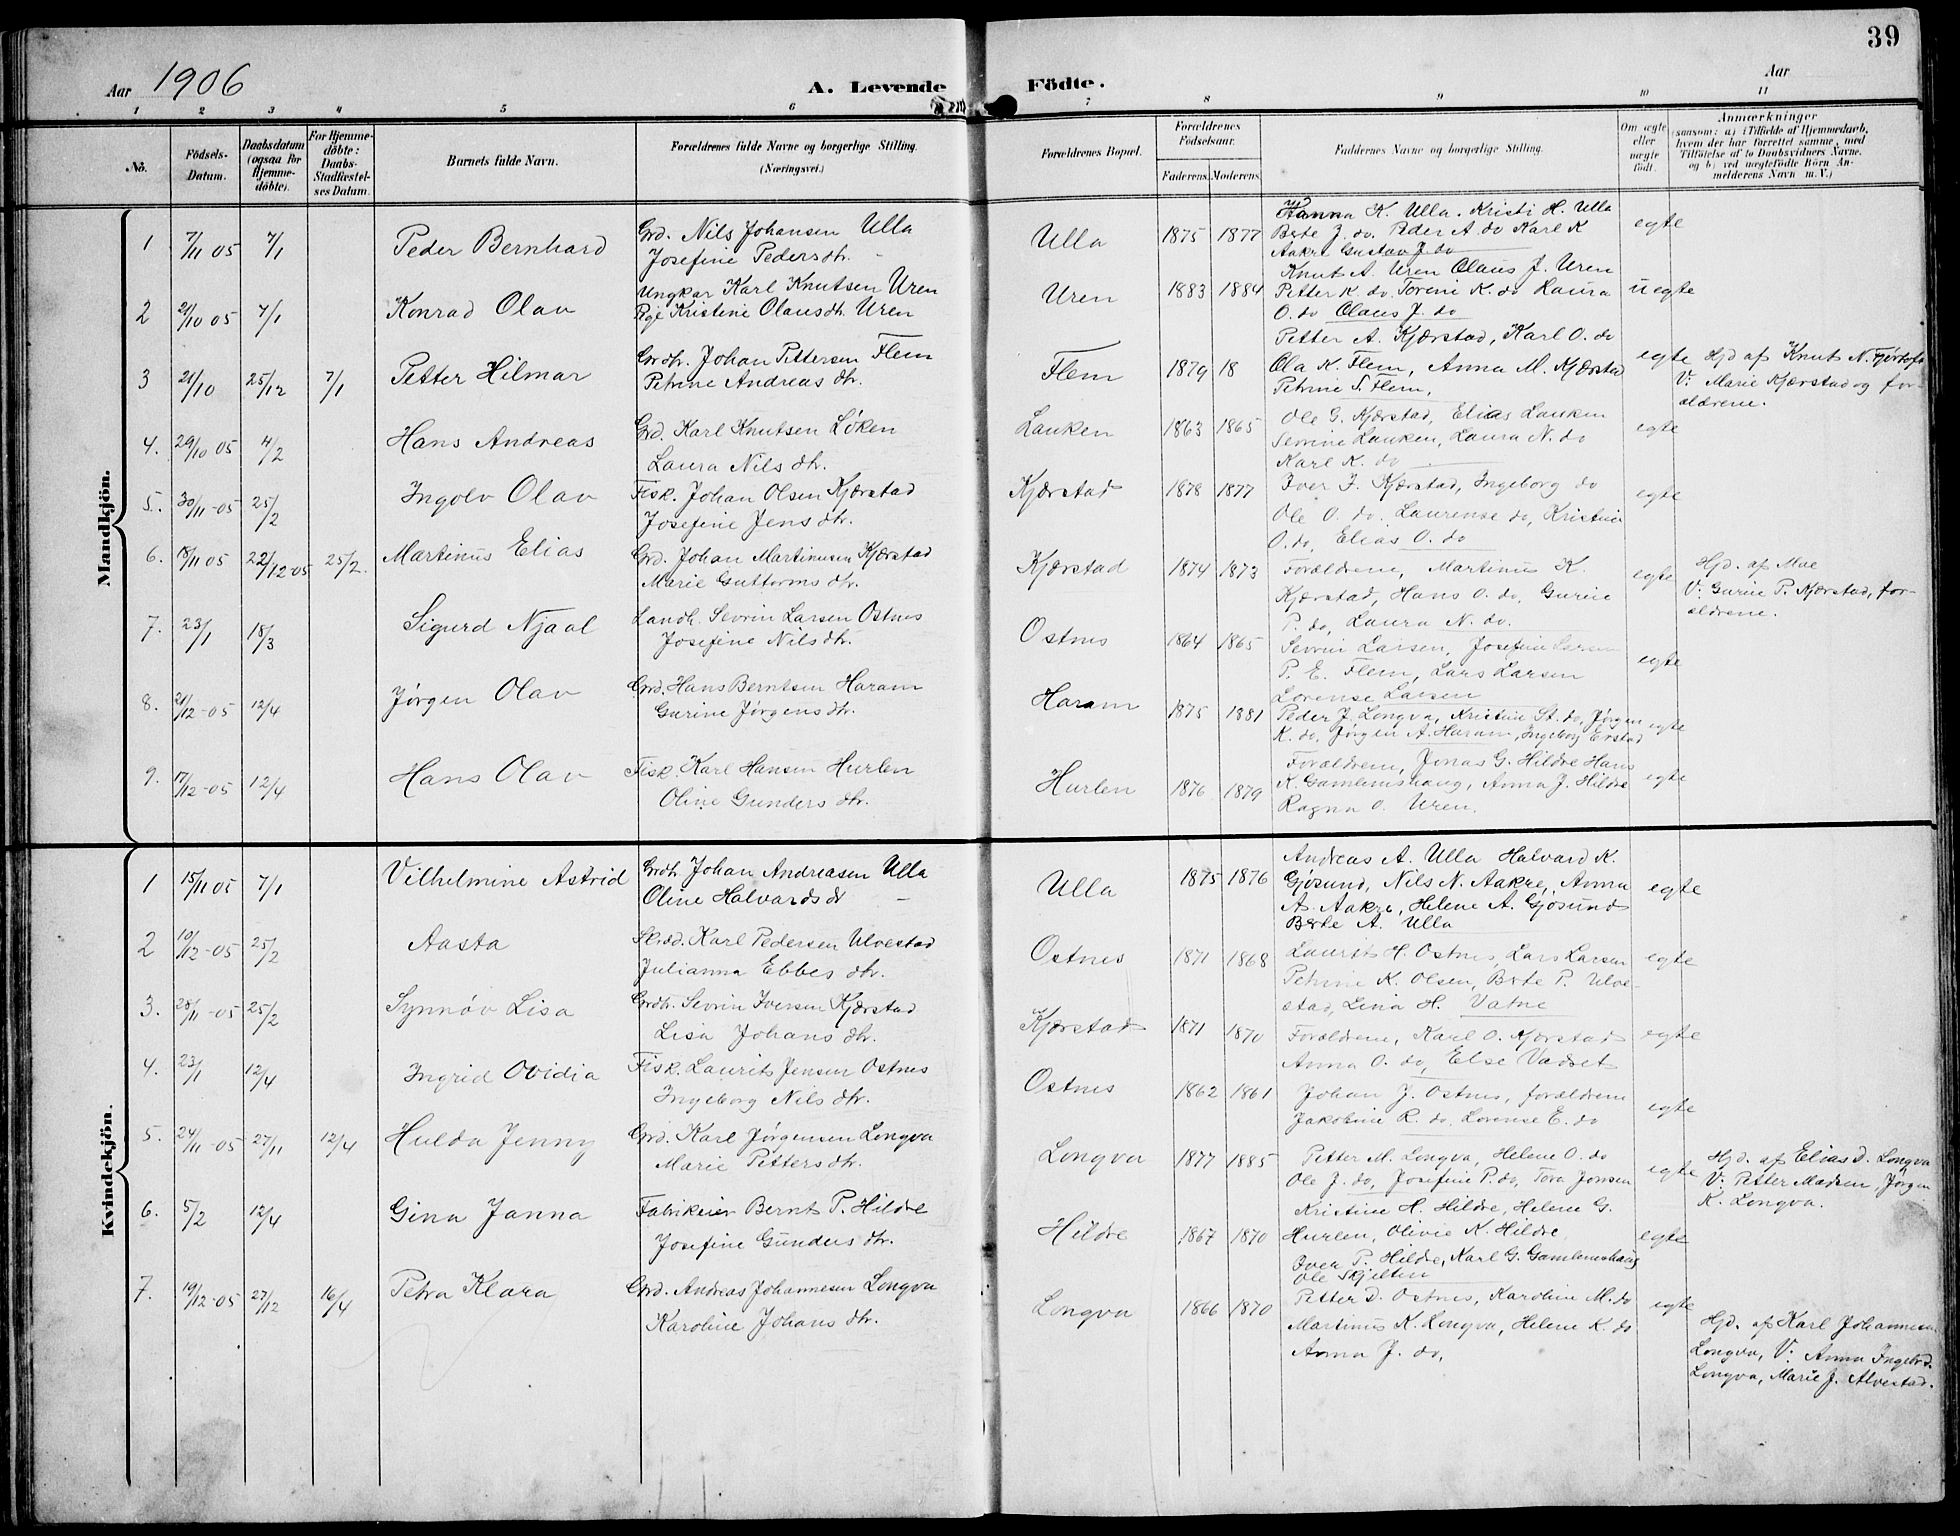 39
Aar 1906
A. Levende
Födte.
Aar
1 2 3 4 5 6 7 8 9 10 11
No.
Födsels-Datum.
Daabsdatum (ogsaa for Hjemme-döbte).
For Hjemme-döbte: Daabs-Stadfæstel-ses Datum.
Barnets fulde Navn.
Forældrenes fulde Navne og borgerlige Stilling.
(Næringsvei.)
Forældrenes Bopæl.
Forældrenes Födselsaar.
Faderens. Moderens.
Faddernes Navne og borgerlige Stilling.
Om ægte eller uægte født.
Anmærkninger
(saasom: a) i Tilfælde af Hjemmedaab,
hvem der har forrettet samme, med
Tilföielse af to Daabsvidners Navne,
og b) ved uægtefödte Börn An-
melderens Navn m. V.)
Mandkjön.
1 7/11 05 7/1 Peder Bernhard Grd. Nils Johansen Ulla
Josefine Pedersdtr. -
Ulla 1875 1877 Hanna K. Ulla. Kristi H. Ulla
Berte J. do. Peder A. do Karl K
Aakre Gustav J. do
egte
2 21/10 05 7/1 Konrad Olav Ungkar Karl Knutsen Uren
Pige Kristine Olausdtr. Uren
Uren 1883 1884 Knut A. Uren Olaus J. Uren
Petter K. do. Torine K. do Laura
O. do Olaus J. do
uegte
3 21/10 25/12 7/1 Petter Hilmar Grdbr. Johan Pettersen Flem
Petrine Andreasdtr.
Flem 1879 18 Petter A. Kjærstad, Karl O. do
Ola K. Flem, Anna M. Kjærstad
Petrine S. Flem,
egte Hjd af Knut N. Fjørtoft
V: Marie Kjærstad og for-
ældrene.
4. 29/10 05 4/2 Hans Andreas Grd. Karl Knutsen Løken
Laura Nilsdtr.
Lauken 1863 1865 Ole G. Kjærstad, Elias Lauken
Sevrine Lauken, Laura N. do
Karl K. do
egte
5. 30/11-05 25/2 Ingolv Olav Fisk. Johan Olsen Kjærstad
Josefine Jensdtr.
Kjærstad 1878 1877 Iver J. Kjærstad, Ingeborg do
Ole O. do. Laurense do, Kristine
O. do, Elias O. do
egte
6. 18/11 05 22/12-05 25/2. Martinus Elias Grd. Johan Martinusen Kjærstad
Marie Guttormsdtr.
Kjærstad 1874 1873 Forældrene, Martinus K.
Kjærstad, Hans O. do, Gurine
P. do, Laura N. do.
egte Hjd. af Moe
V: Gurine P. Kjærstad, for-
ældrene.
7. 23/1 18/3 Sigurd Njaal Landh. Sevrin Larsen Ostnes
Josefine Nilsdtr.
Ostnes 1864 1865 Sevrin Larsen, Josefine Larsen
P. E. Flem, Lars Larsen
Lorense Larsen
egte
8. 21/12-05 12/4 Jørgen Olav Grd. Hans Berntsen Haram
Gurine Jørgensdtr.
Haram 1875 1881 Peder J. Longva, Kristine St. do, Jørgen
K. do, Jørgen A. Haram, Ingeborg Erstad
egte
9. 17/12-05 12/4 Hans Olav Fisk. Karl Hansen Hurlen
Oline Gundersdtr.
Hurlen 1876 1879 Forældrene, Jonas G. Hildre Hans
K. Gamlemshaug, Anna J. Hildre
Ragna O. Uren.
egte
Kvindekjön.
1 15/11 05 7/1 Vilhelmine Astrid Grdb. Johan Andreasen Ulla
Oline Halvardsdtr -
Ulla 1875 1876 Andreas A. Ulla Halvard K.
Gjøsund, Nils N. Aakre, Anna
A. Aakre, Helene A. Gjøsund
Berte A. Ulla
egte
2 10/12-05 25/2 Aasta Skrdd. Karl Pedersen Ulvestad
Julianna Ebbesdtr.
Ostnes 1871 1868 Laurits H. Ostnes, Lars Larsen
Petrine K. Olsen, Berte P. Ulve-
stad, Lina H. Vatne
egte
3. 28/11-05 25/2 Synnøv Lisa Grdbr. Sevrin Iversen Kjærstad
Lisa Johansdtr.
Kjærstad 1871 1870 Forældrene, Karl O. Kjærstad
Anna O. do, Else Vadset
egte
4. 23/1 12/4 Ingrid Ovidia Fisk. Laurits Jensen Ostnes
Ingeborg Nilsdtr.
Ostnes 1862 1861 Johan J. Ostnes, forældrene
Jakobine R. do, Lorense E. do
egte
5. 24/11-05 27/11 12/4 Hulda Jenny Grd. Karl Jørgensen Longva
Marie Pettersdtr.
Longva 1877 1885 Petter M. Longva, Helene O. do
Ole J. do, Josefine P. do, Tora Jonsen
egte Hjd. af Elias D. Longva
V: Petter Madsen, Jørgen
K. Longva.
6. 5/2 12/4 Gina Janna Fabrikeier Bernt P. Hildre
Josefine Gundersdtr.
Hildre 1867 1870 Kristine H. Hildre, Helene G.
Hurlen, Olivie K. Hildre
Iver P. Hildre, Karl G. Gamlemshaug
Ole Skjelten
egte
7. 19/12-05 27/12 16/4 Petra Klara Grd. Andreas Johannesen Longva
Karoline Johansdtr.
Longva 1866 1870 Petter D. Ostnes, Karoline M. do
Martinus K. Longva, Helene K. do
Anna J. do,
egte Hjd. af Karl Johannesen
Longva, V: Anna Ingebr.
Longva, Marie J. Alvestad.